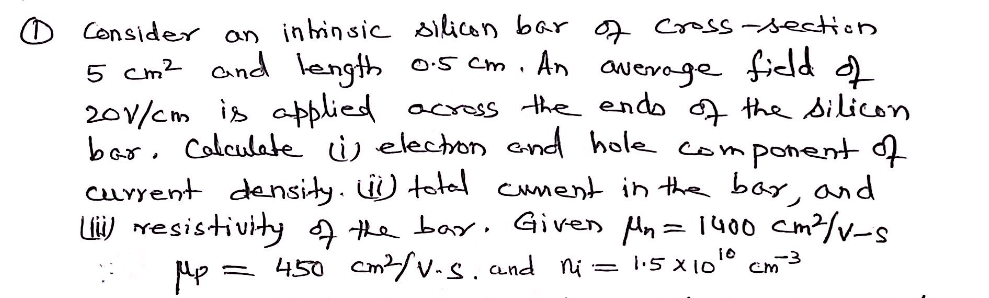 ① Consider an intrinsic silicon bar of cross-section
5 cm² and length 0.5 cm. An average field of
20V/cm is applied across the ends of the silicon
bar. Calculate (i) electron and hole component of
current density. (ii) total current in the bar, and
(iii) resistivity of the bar. Given μn = 1400 cm²/V-s
μp = 450 cm²/V-s. and ni = 1.5 x 10¹⁰ cm⁻³